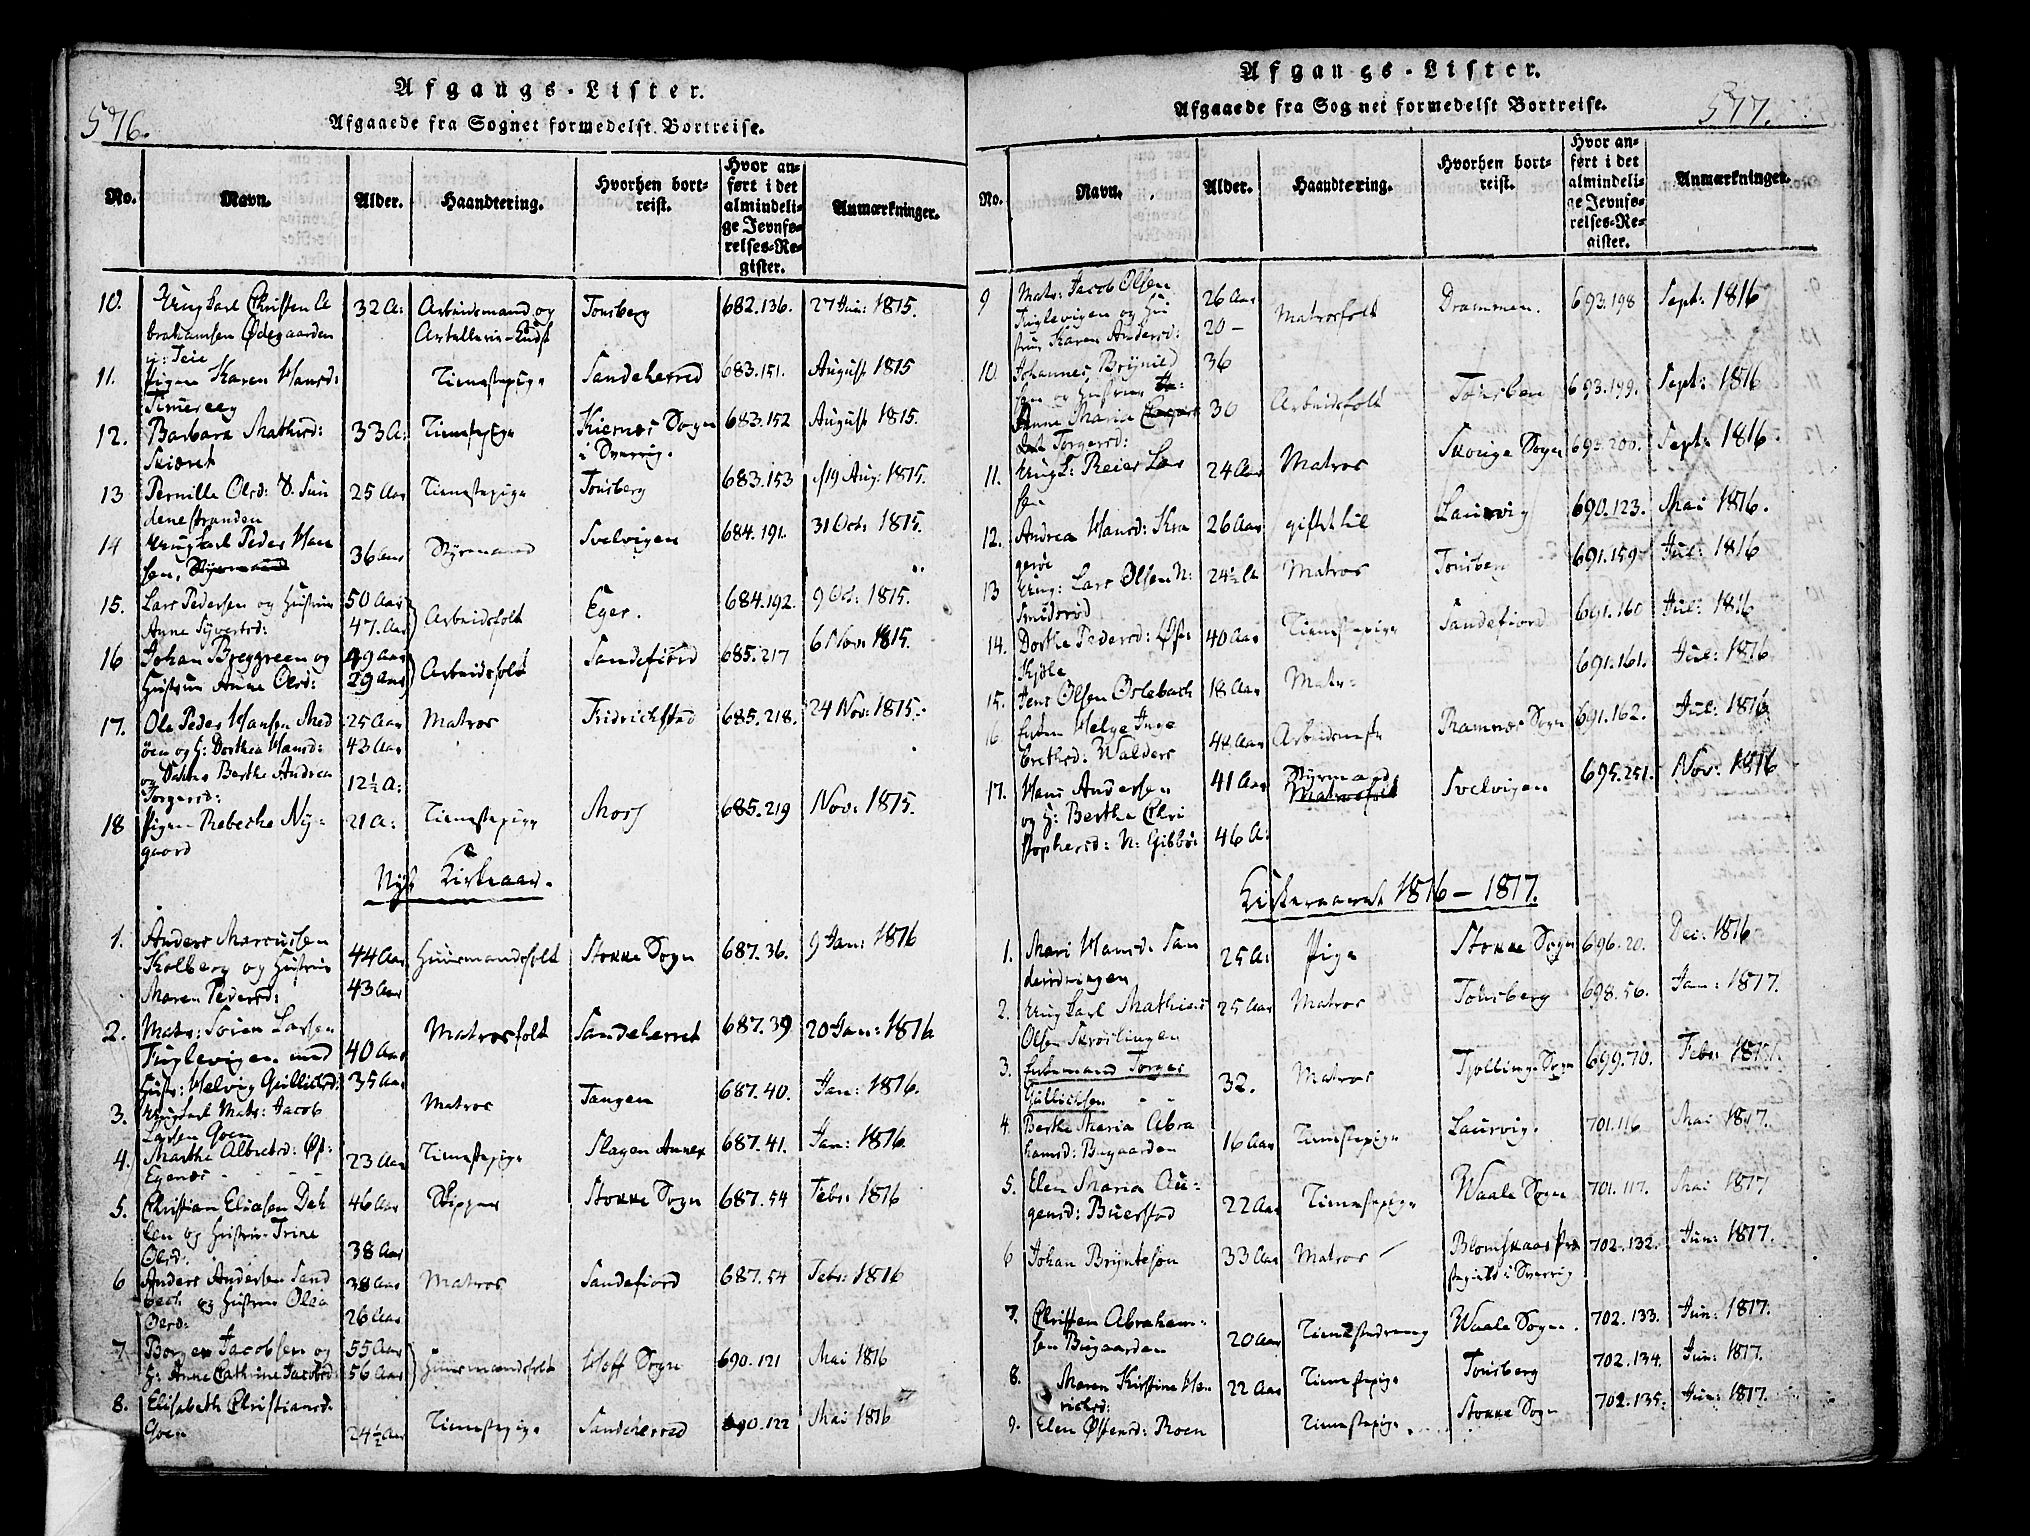 576.
Afgangs-Lister.
Afgaaede fra Sognet formedelst Bortreise.
No. Navn. Alder. Haandtering. Hvorhen bortreist. Hvor anført i det almindelige Jevnførelses-Register. Anmærkninger.
10. Ungkarl Christen A 32 A: Arbeidsmand og Tonsberg 682.136. 27 Jun: 1815.
brahamsen Ødegaarden
11. Pigen Karen Hansd: Tienestepige Sandeherred 683.151. August 1815
12. Barbara Mathisd: 33 A: Tienestepige Kiernes Sogn 683.152 August 1815.
Skiæret i Sverrig.
13 Pernille Olsd: 25 Aar Tienestepige Tonsberg 683.153 19 Aug: 1815.
denestranden
14 Ungkarl Peder Han 36 Aar Styrmand Svelvigen 684.191. 31 Oct: 1815.
sen, Styrmand
15. Lars Pedersen og Hustrue 50 Aar Arbeidsfolk Eger. 684.192. 9 Oct: 1815.
Anne Syvertsd: 47 Aar
16 Johan Breggreen og 49 Aar Arbeidsfolk Sandefiord 685.217 6 Nov: 1815.
Hustrue Anne Olsd: 29 Aar
17. Ole Peder Hansen Med 25 Aar Matros Fridrichstad 685.218. 24 Nov: 1815.
øen og H: Dorthea Hansd: 43 Aar
Berthe Andrea 12½ A:
Torgersd:
18 Pigen Rebecke Ny= 21 A: Tienestepige Moss 685.219 Nov: 1815.
gaard
Nyt Kirkeaar.
1. Anders Marcussen 44 Aar Huusmandsfolk Stokke Sogn 687.36. 9 Jan: 1816
Kolberg og Hustrue
Maren Pedersd: 43 Aar
2. Matr: Søren Larsen Matrosfolk Sandeherret 687.39 20 Jan: 1816
Fuglevigen med 40 Aar
Hustr: Helvig Gullichsd: 35 Aar
3. Ungkarl Matr: Jacob Matros Tangen 687.40. Jan: 1816.
Larsen Goen
4. Marthe Albretsd: Øst: 23 Aar Tienestepige Slagen Annex 687.41. Jan: 1816.
Egenæs
5. Christian Eliasen Dah 46 Aar Skipper Stokke Sogn 687.54 Febr: 1816
len og Hustrue Trine
Olsd: 38 Aar
6 Anders Andersen Sand 38 Aar Matros Sandefiord 687.54 Febr: 1816
beck og Hustrue Olea
Olsd: 26 Aar
7 Borger Jacobsen og 55 Aar Huusmandsfolk Hoff Sogn 690.121 Mai 1816
H: Anne Cathrine Jacobsd: 56 Aar
8. Elisabeth Christiansd: Tienestepige Sandeherred 690.122 Mai 1816
Goen 24½ Aar
577.
Afgangs-Lister.
Afgaaede fra Sognet formedelst Bortreise.
No. Navn. Alder. Haandtering. Hvorhen bortreist. Hvor anført i det almindelige Jevnførelses-Register. Anmærkninger.
9 Matr: Jacob Olsen 26 Aar Matrosfolk Drammen. 693.198 Sept: 1816
Fuglevigen og Hu 20 —
strue Karen Andersd:
10. Johannes Brynild 36 Arbeidsfolk Tonsberg 693.199. Sept: 1816
sen og Hustrue
Anne Maria 30
Torgersd:
11. Ungk: Reier Lar 24 Aar Matros Skouge Sogn 693.200. Sept: 1816.
sen
12. Andrea Hansd: Kra 26 Aar gift til Laurvig 690.123. Mai 1816.
gerøe
13 Ungk: Lars Olsen N: 24½ A Matros Tonsberg 691.159 Jul: 1816
Smidsrød
14. Dorthe Pedersd: Øst: 40 Aar Tienestepige Sandefiord 691.160 Jul: 1816
Kjøle
15. Jens Olsen Oslebach 18 Aar Matr: 691.161. Jul: 1816
16 Enken Helge Inge 44 Aar Ramnæs Sogn 691.162. Jul: 1816
brethsd: Walders
17. Hans Andersen 41 Aar Styrmand Svelvigen 695.251. Nov: 1816
og H: Berthe Chri Matrosfolk
stophersd: N: Gibbø: 46 A:
Kirkeaaret 1816 — 1817.
1. Mari Hansd: San 25 A: Pige Stokke Sogn 696.20. Dec: 1816
2. Ungkarl Mathias 25 Aar Matros Tonsberg 698.56. Jan: 1817.
Olsen
3. Enkemand Torger 32. Matros Tjølling Sogn 699.70. Febr: 1817.
Gullichsen
4. Berthe Maria Abra 16 Aar Tienestepige Laurvig. 701.116 Mai 1817.
hamsd: Bugaarden
5. Elen Maria Au= 22 Aar Tienestepige Waale Sogn 701.117. Mai 1817
gensd: Buerstad
6 Johan Bryntesøn 33 Aar Matros Blomskaas Præ 702.132. Jun: 1817.
stegield i Sverrig
7. Christen Abraham= 20 Aar Tienestedreng Waale Sogn. 702.133. Jun: 1817.
sen Bugaarden
8. Maren Kirstine He 22 Aar Tienestepige Tonsberg 702.134. Jun: 1817.
richsd:
9. Elen Østensd: Roen Tienestepige Stokke Sogn 702.135. Jun: 1817.